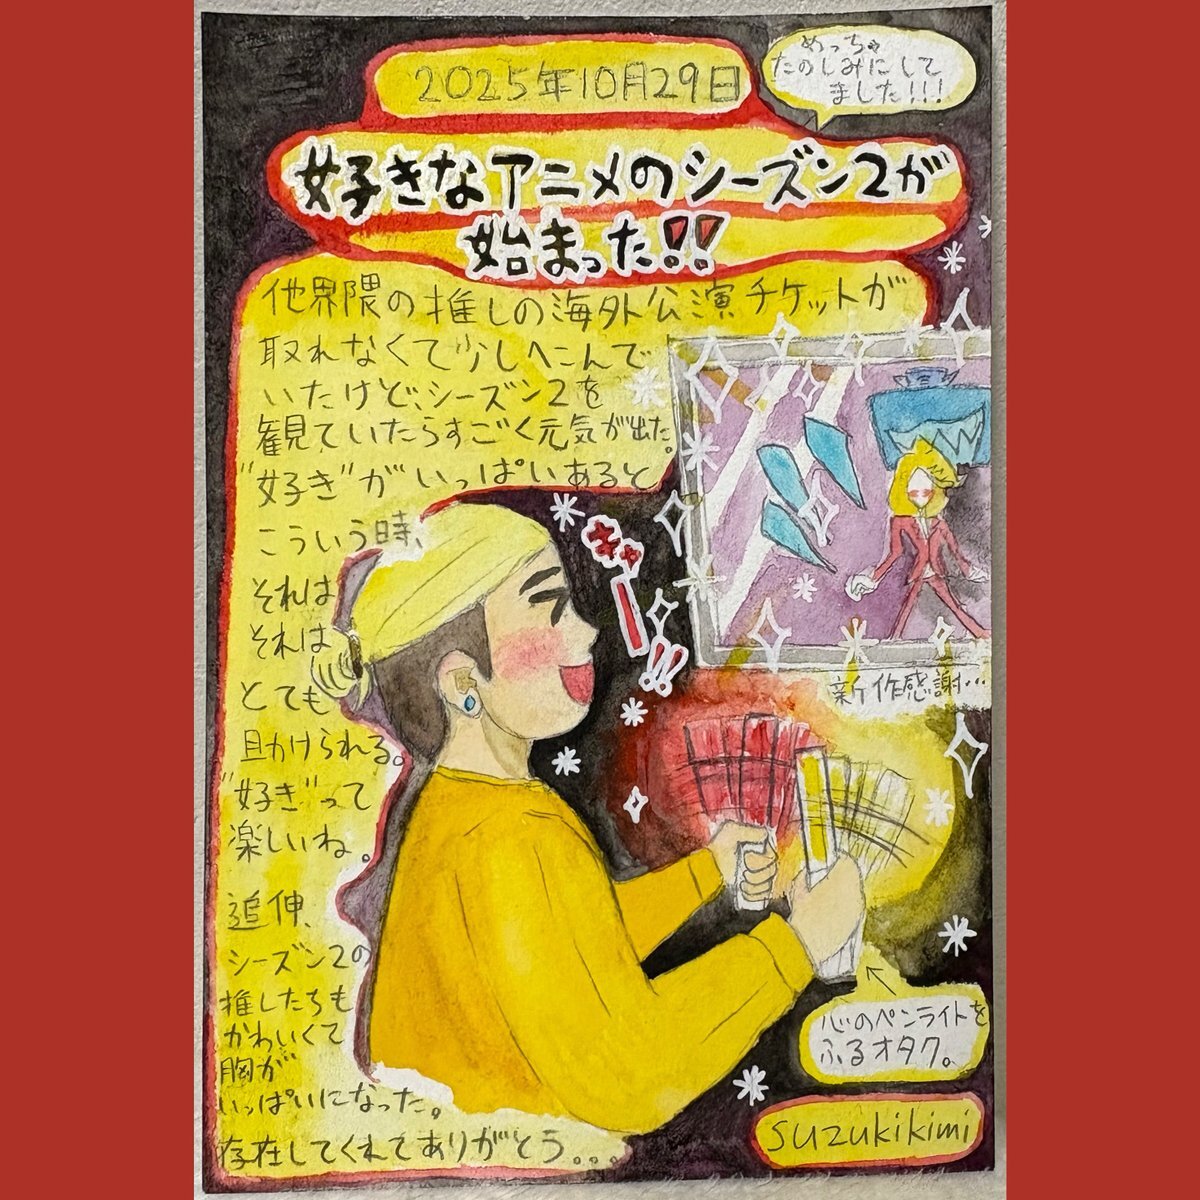 2025年10月29日
めっちゃ
たのしみにして
ました!!!
好きなアニメのシーズン2が
始まった!!
他界隈の推しの海外公演チケットが
取れなくて少しへこんで
いたけど、シーズン2を
観ていたらすごく元気が出た。
"好き"がいっぱいあると
こういう時、
それは
それは
とても
助けられる。
"好き"って
楽しいね。
追伸、
シーズン2の
推したちも
かわいくて
胸が
いっぱいになった。
存在してくれてありがとう...
キャー!!
新作感謝...
心のペンライトを
ふるオタク。
suzukikimi